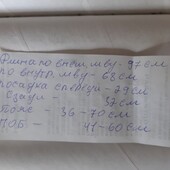 Длина по внеш.шву - 97 см
по внутр.шву - 68 см
посадка спереди - 29 см
Сзади - 37 см
Пояс - 36-70 см
ПОБ. - 41-60 см